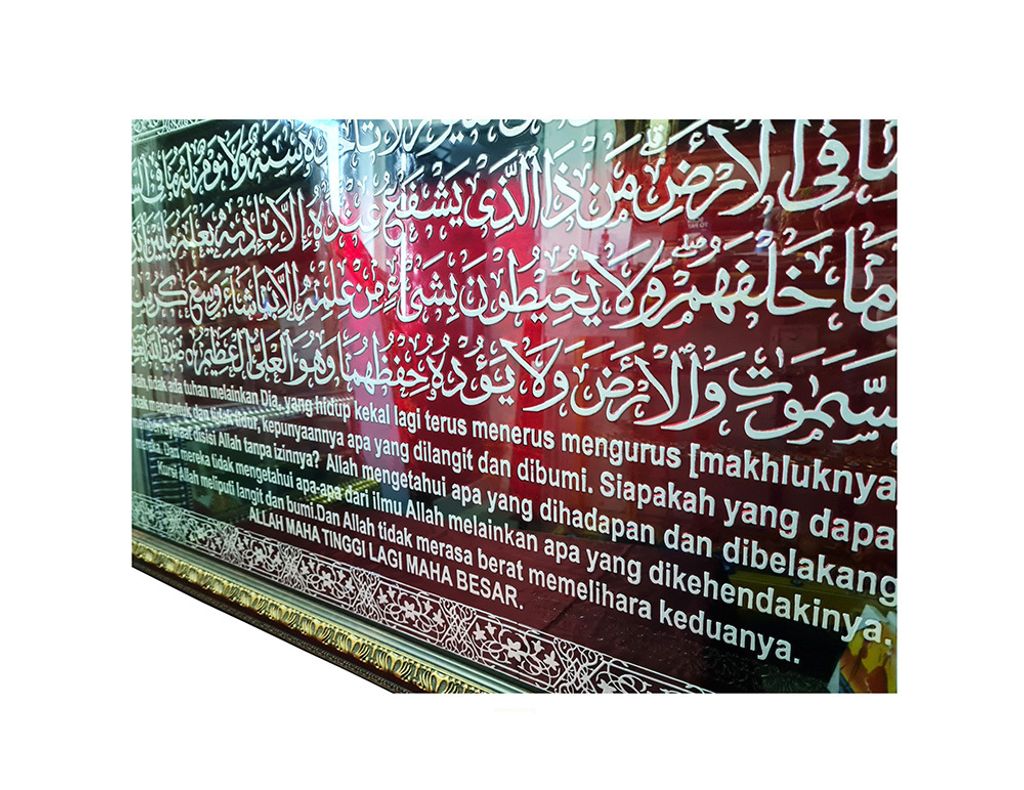 تأخذه سنة ولا نوم له ما في
ما في الأرض من ذا الذي يشفع عنده إلا بإذنه يعلم ما بين
وما خلفهم ولا يحيطون بشيء من علمه إلا بما شاء وسع
السموت والأرض ولا يؤده حفظهما وهو العلي العظيم
tidak ada tuhan melainkan Dia, yang hidup kekal lagi terus menerus mengurus [makhluknya
tidak mengantuk dan tidak tidur, kepunyaannya apa yang dilangit dan dibumi. Siapakah yang dapa
disisi Allah tanpa izinnya? Allah mengetahui apa yang dihadapan dan dibelakang
Dan mereka tidak mengetahui apa-apa dari ilmu Allah melainkan apa yang dikehendakinya.
Kursi Allah meliputi langit dan bumi.Dan Allah tidak merasa berat memelihara keduanya.
ALLAH MAHA TINGGI LAGI MAHA BESAR.